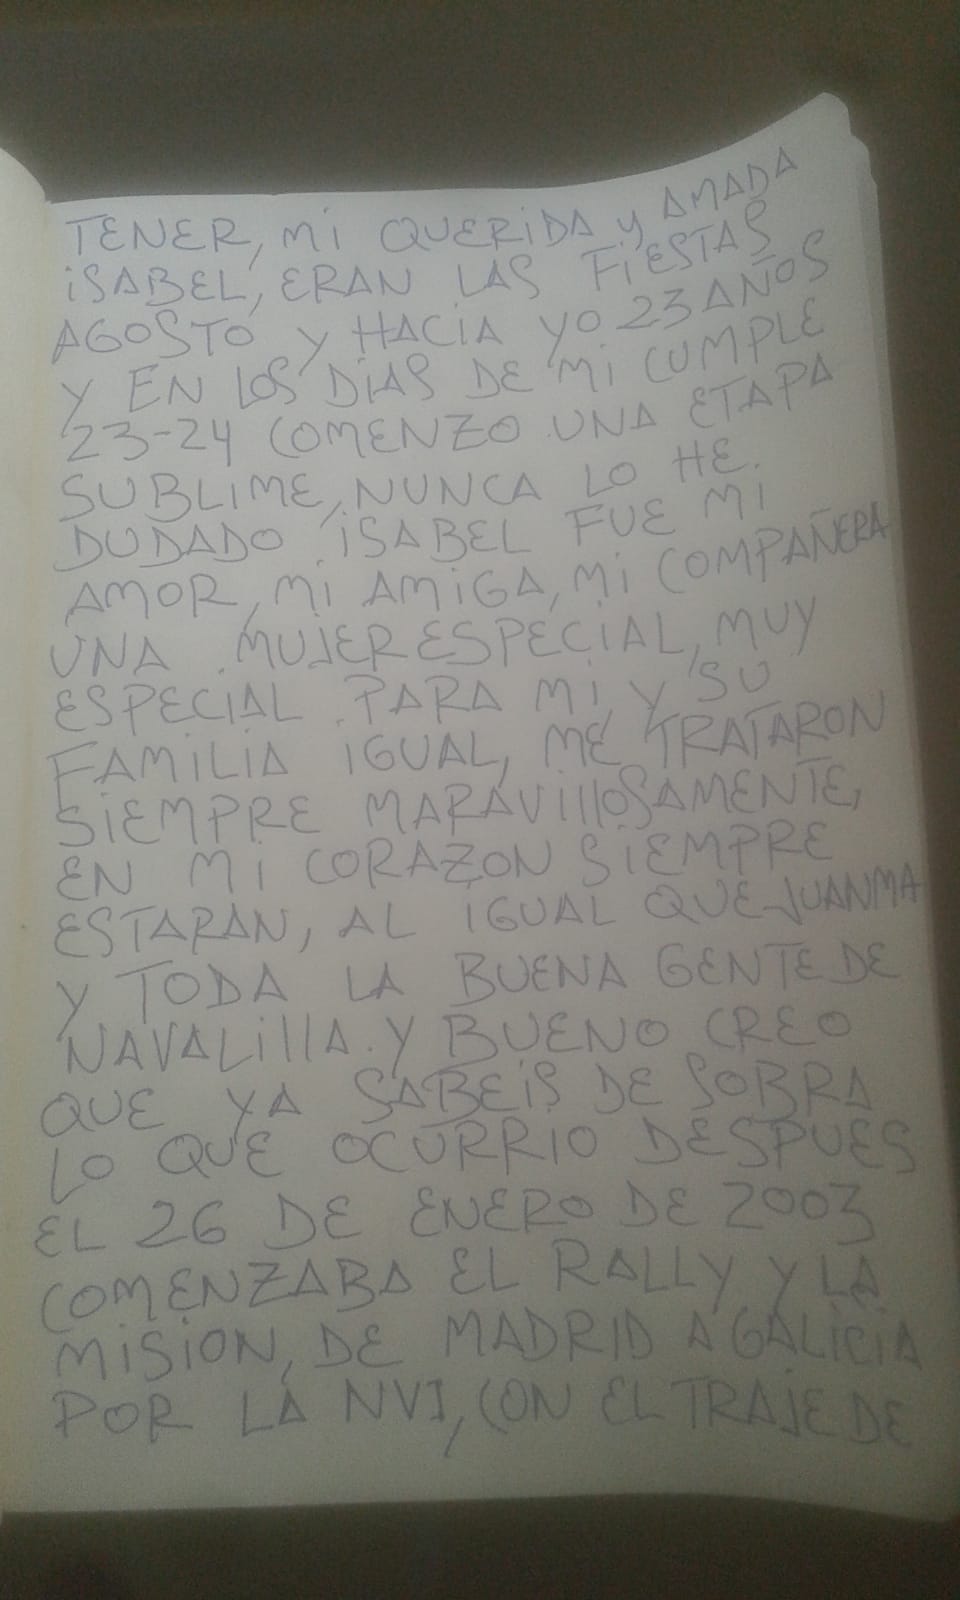 TENER, Mi QUERiDA y AMADA
iSABEL, ERAN LAS FiESTAS
AGOSTO y HACiA yO 23 AÑOS
y EN LOS DiAS DE Mi CUMPLE
23-24 COMENZO UNA ETAPA
SUBLIME, NUNCA LO HE.
DUDADO iSABEL FUE Mi
AMOR, Mi AMiGA, Mi COMPAÑERA
UNA MUJER ESPECIAL, MUY
ESPECIAL PARA Mi, y SU
FAMiLiA IGUAL, ME TRATARON
SiEMPRE MARAVillOSAMENTE,
EN Mi CORAZON SiEMPRE
ESTARAN, AL IGUAL QUE JUANMA
y TODA LA BUENA GENTE DE
NAVALillA. y BUENO CREO
QUE YA SABEiS DE SOBRA
LO QUE OCURRIO DESPUES
EL 26 DE ENERO DE 2003
COMENZABA EL RALLY y LA
MiSiON, DE MADRID A GALiCiA
POR LA NVI, CON EL TRAJE DE